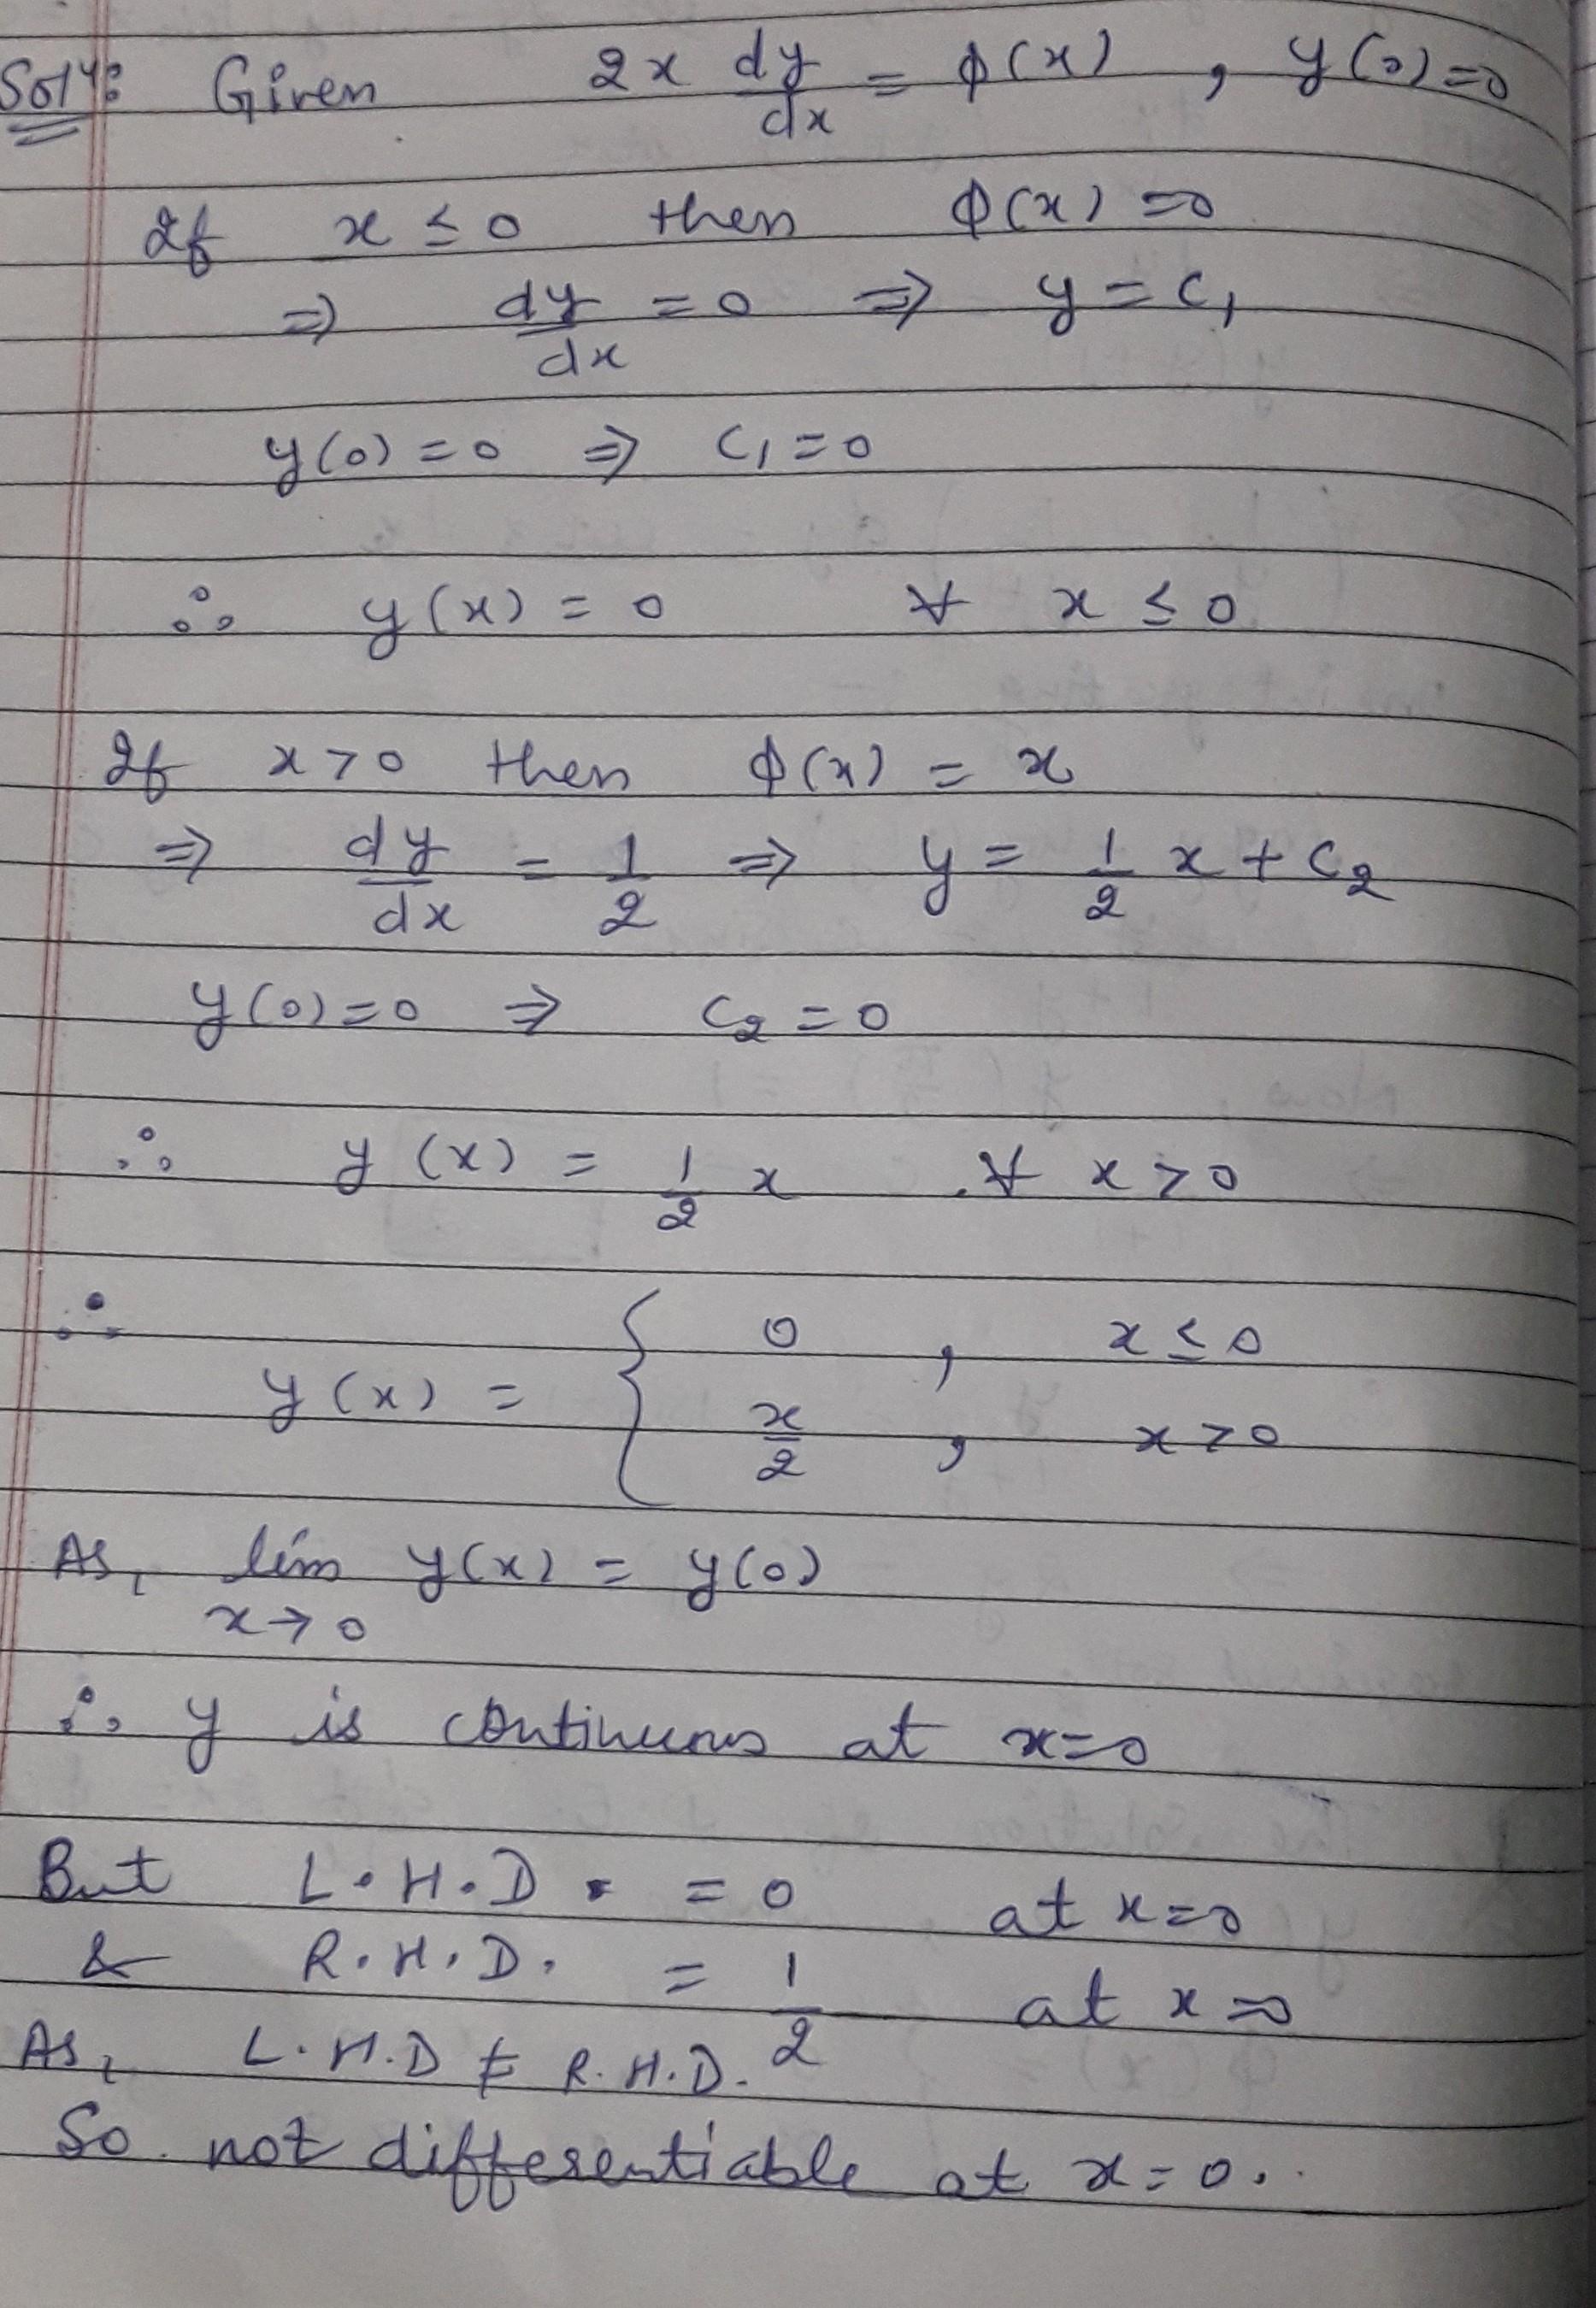 Solⁿ: Given 2x dy/dx = φ(x) , y(0)=0
If x ≤ 0 then φ(x) = 0
⇒ dy/dx = 0 ⇒ y = C₁
y(0) = 0 ⇒ C₁ = 0
∴ y(x) = 0 ∀ x ≤ 0
If x > 0 then φ(x) = x
⇒ dy/dx = 1/2 ⇒ y = 1/2 x + C₂
y(0) = 0 ⇒ C₂ = 0
∴ y(x) = 1/2 x ∀ x > 0
∴ y(x) = { 0 , x ≤ 0
x/2 , x > 0
As, lim x→0 y(x) = y(0)
∴ y is continuous at x=0
But L.H.D. = 0 at x=0
& R.H.D. = 1/2 at x=0
As, L.H.D ≠ R.H.D.
So not differentiable at x=0.